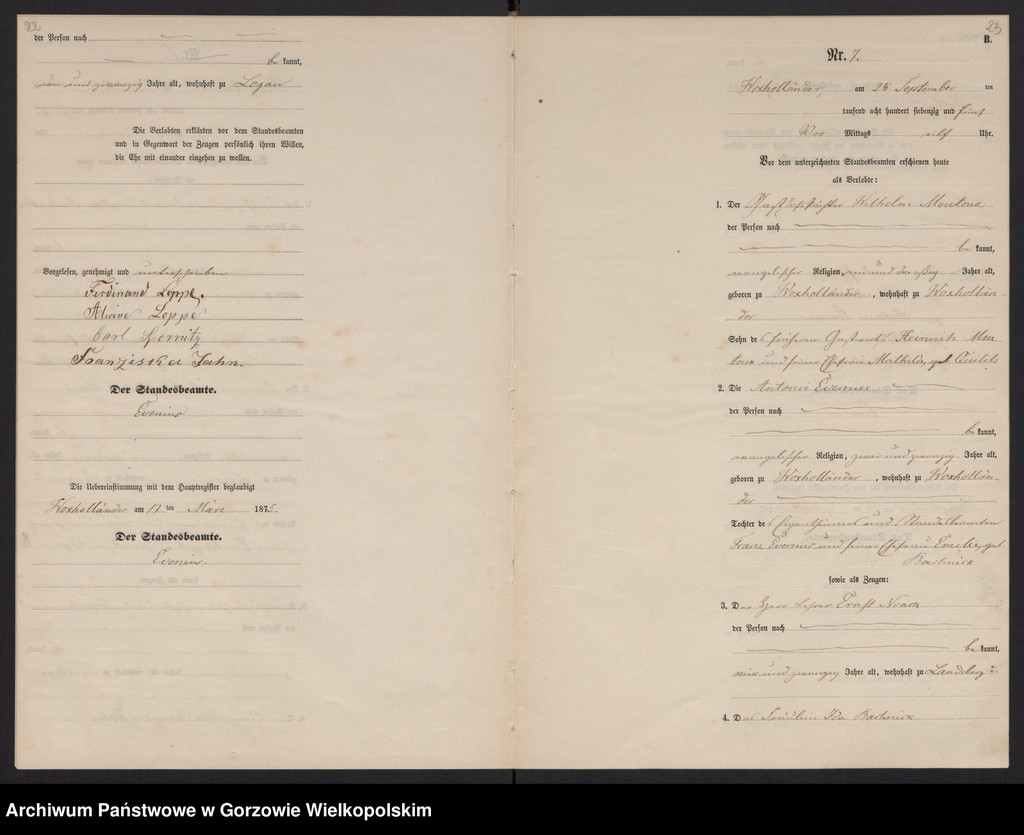 22
der Person nach
be kannt,
und zwanzig Jahre alt, wohnhaft zu Logau
Die Verlobten erklärten vor dem Standesbeamten
und in Gegenwart der Zeugen persönlich ihren Willen,
die Ehe mit einander eingehen zu wollen.
Vorgelesen, genehmigt und unterschrieben
Ferdinand Leppe.
Leppe
Carl
Franziska Jahn.
Der Standesbeamte.
Evenius
Die Uebereinstimmung mit dem Hauptregister beglaubigt
Woxholländer am 17 ten März 1875.
Der Standesbeamte.
Evenius
23
B.
Nr. 7.
Woxholländer, am 28 September ten
tausend acht hundert siebenzig und fünf
Vor Mittags eilf Uhr.
Vor dem unterzeichneten Standesbeamten erschienen heute
als Verlobte:
1. Der Wilhelm Montoux
der Person nach
be kannt,
evangelischer Religion, ein und dreißig Jahre alt,
geboren zu Woxholländer, wohnhaft zu Woxhollän-
der
Sohn des Heinrich Mon
toux und seiner Ehefrau Mathilde, geb.
2. Die Antonie Evenius
der Person nach
be kannt,
evangelischer Religion, zwei und zwanzig Jahre alt,
geboren zu Woxholländer, wohnhaft zu Woxhollän-
der
Tochter des Eigenthümers und Standesbeamten
Franz Evenius und seiner Ehefrau Emilie, geb.
sowie als Zeugen:
3. Der Herr Lehrer Ernst Noack
der Person nach
be kannt,
und zwanzig Jahre alt, wohnhaft zu Landsberg
4. Das Fräulein Ida
Archiwum Państwowe w Gorzowie Wielkopolskim